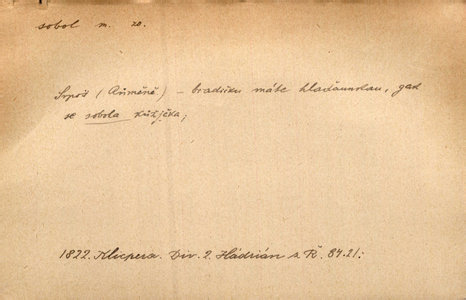 sobol m. zo.
Srpoš (Růměně) – bradičku máte hlaďounkou, gak
ze sobola kůžička;
1822. Klicpera. Div. 2. Hadrián z Ř. 84.21: